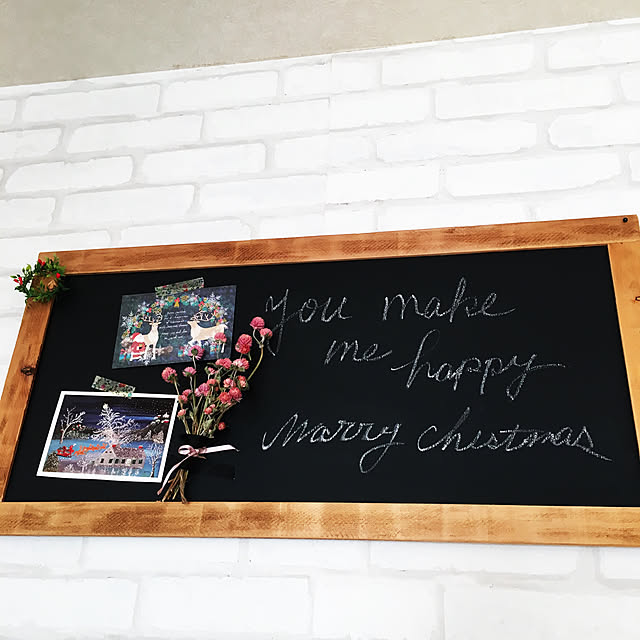 You make
me happy
Marry chistmas